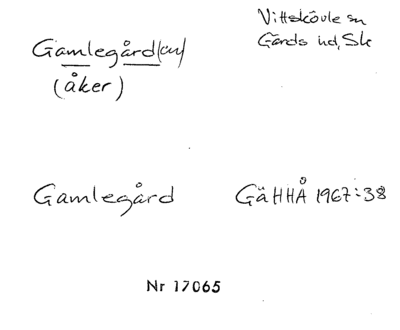 Vittskövle sn
Gärds hd, Sk
Gamlegård(en)
(åker)
Gamlegård GäHHÅ 1967:38
Nr 17065